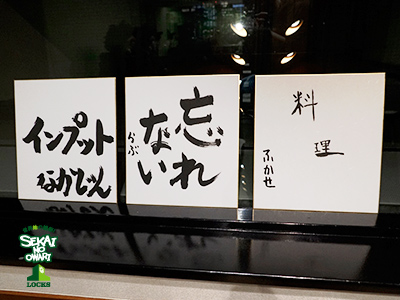 インプット
なかじん
忘れ
ない
らぶ
料
理
ふかせ
SEKAI
NO
OWARI
LOCKS